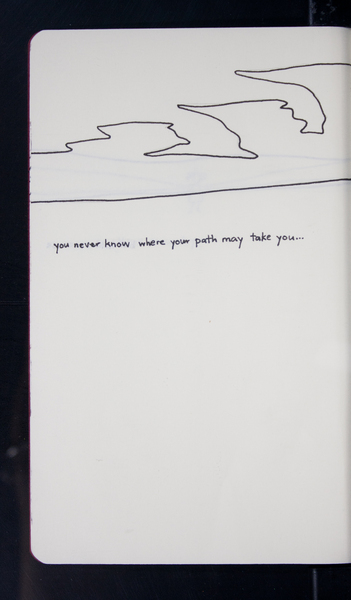 you never know where your path may take you...